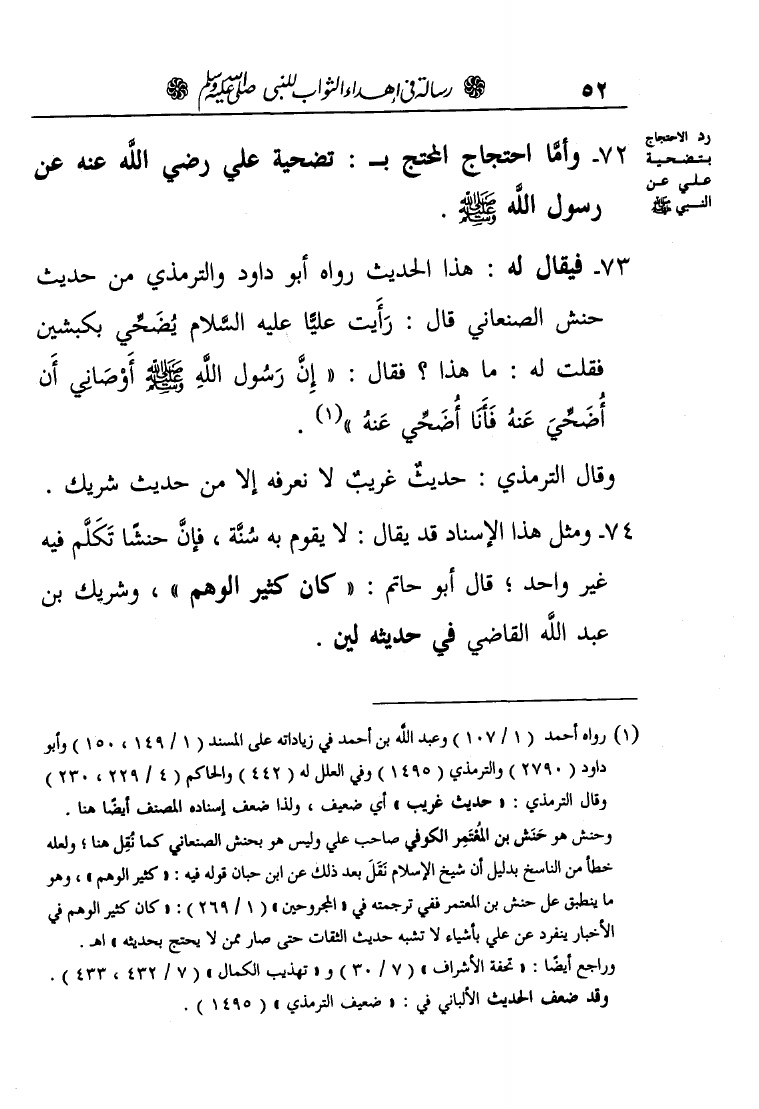 ٥٢ ۞ رسالة في إهداء الثواب للنبي ﷺ ۞
رد الاحتجاج
بتضحية
علي عن
النبي ﷺ
٧٢ـ وأمَّا احتجاج المحتج بـ : تضحية علي رضي اللَّه عنه عن
رسول اللَّه ﷺ .
٧٣ـ فيقال له : هذا الحديث رواه أبو داود والترمذي من حديث
حنش الصنعاني قال : رَأَيت عليًّا عليه السَّلام يُضَحِّي بكبشين
فقلت له : ما هذا ؟ فقال : « إِنَّ رَسُول اللَّهِ ﷺ أَوْصَانِي أَن
أُضَحِّيَ عَنهُ فَأَنَا أُضَحِّي عَنهُ »(١) .
وقال الترمذي : حديثٌ غريبٌ لا نعرفه إلا من حديث شريك .
٧٤ـ ومثل هذا الإسناد قد يقال : لا يقوم به سُنَّة ، فإنَّ حنشًا تَكَلَّم فيه
غير واحد ؛ قال أبو حاتم : « كان كثير الوهم » ، وشريك بن
عبد اللَّه القاضي في حديثه لين .
(١) رواه أحمد ( ١ / ١٠٧ ) وعبد اللَّه بن أحمد في زياداته على المسند ( ١ / ١٤٩ ، ١٥٠ ) وأبو
داود ( ٢٧٩٠ ) والترمذي ( ١٤٩٥ ) وفي العلل له ( ٤٤٢ ) والحاكم ( ٤ / ٢٢٩ ، ٢٣٠ )
وقال الترمذي : « حديث غريب » أي ضعيف ، ولذا ضعف إسناده المصنف أيضًا هنا .
وحنش هو حَنَش بن المُعْتَمِر الكوفي صاحب علي وليس هو بحنش الصنعاني كما نُقِل هنا ؛ ولعله
خطأ من الناسخ بدليل أن شيخ الإسلام نَقَلَ بعد ذلك عن ابن حبان قوله فيه : « كثير الوهم » ، وهو
ما ينطبق عل حنش بن المعتمر ففي ترجمته في « المجروحين » ( ١ / ٢٦٩ ) : « كان كثير الوهم في
الأخبار ينفرد عن علي بأشياء لا تشبه حديث الثقات حتى صار ممن لا يحتج بحديثه » اهـ .
وراجع أيضًا : « تحفة الأشراف » ( ٧ / ٣٠ ) و « تهذيب الكمال » ( ٧ / ٤٣٢ ، ٤٣٣ ) .
وقد ضعف الحديث الألباني في : « ضعيف الترمذي » ( ١٤٩٥ ) .